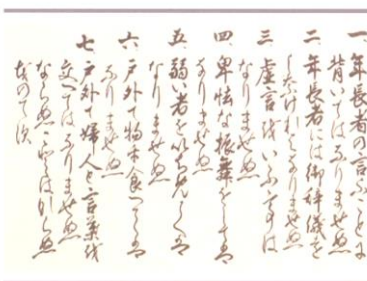 一、年長者の言ふことに
背いてはなりませぬ
二、年長者には御辞儀を
しなければなりませぬ
三、虚言をいふ事は
なりませぬ
四、卑怯な振舞をしては
なりませぬ
五、弱い者をいぢめては
なりませぬ
六、戸外で物を食べては
なりませぬ
七、戸外で婦人と言葉を
交へてはなりませぬ
ならぬことはならぬ
ものです